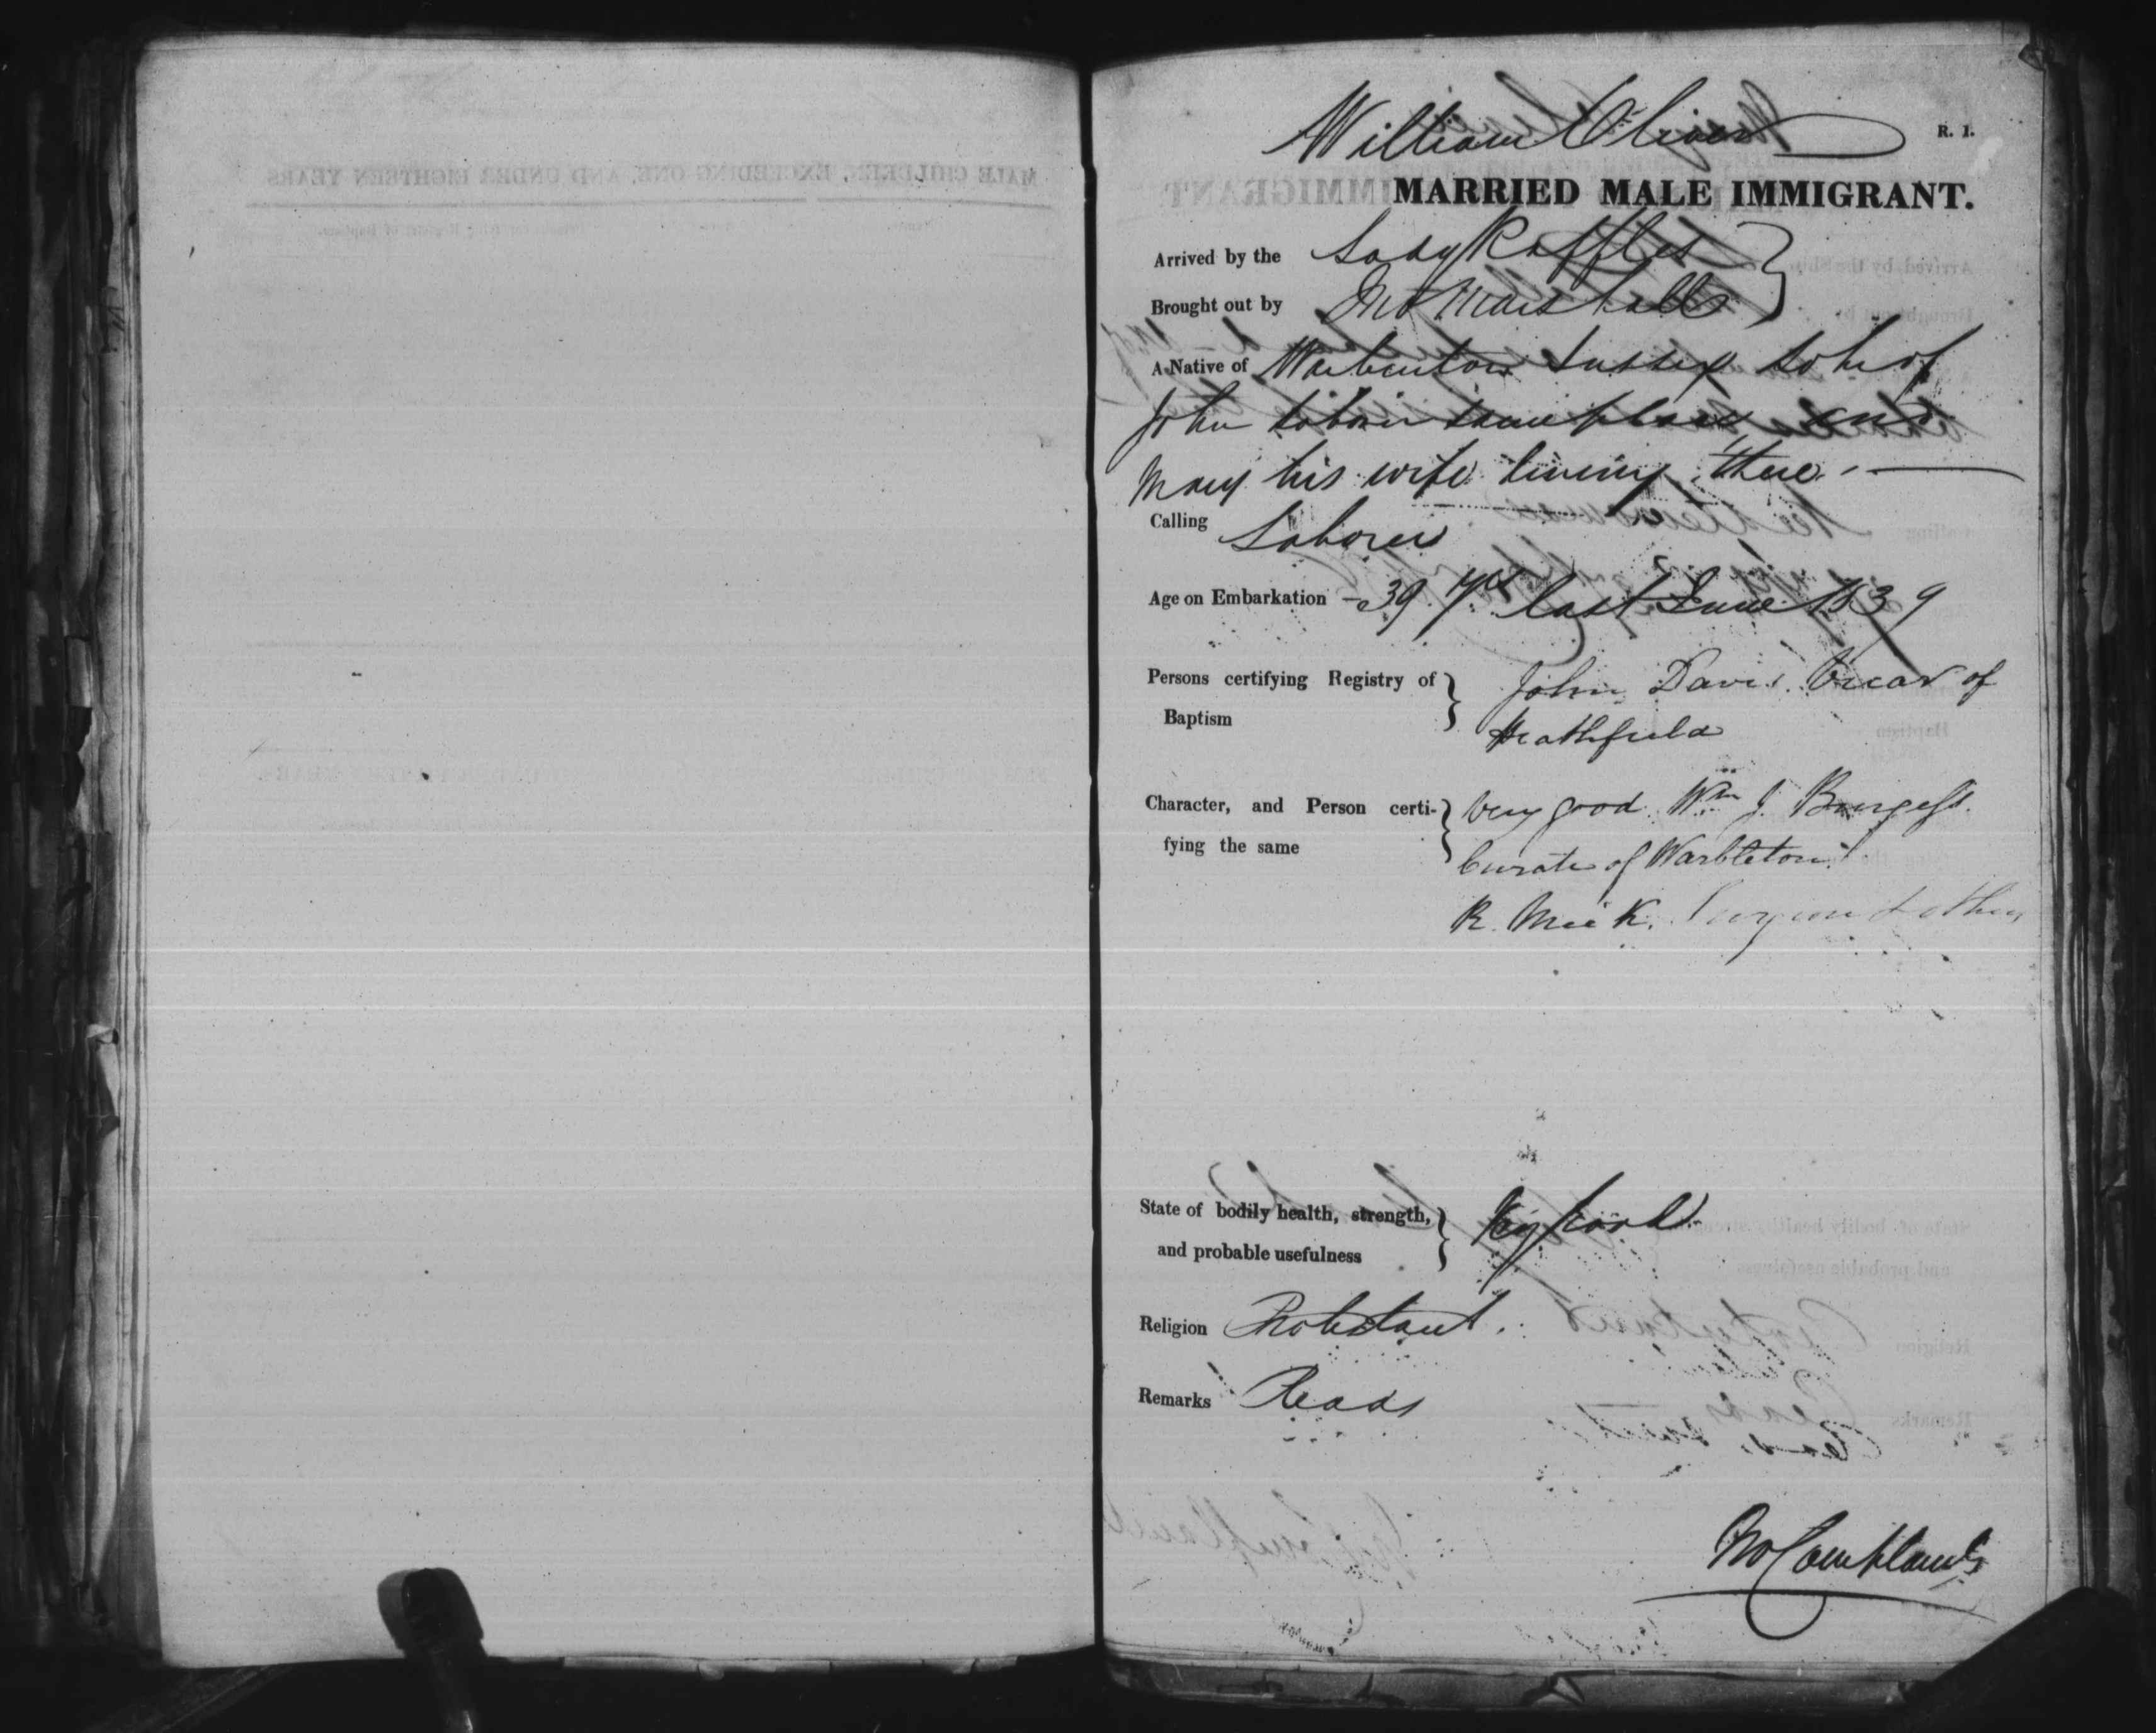 William Oliver
R. 1.
MARRIED MALE IMMIGRANT.
Arrived by the Lady Raffles
Brought out by Mr Marshall
A Native of Warburton Sussex Son of
John Laborer same place and
Mary his wife living there. —
Calling Laborer
Age on Embarkation — 39 yrs last June 1839
Persons certifying Registry of Baptism } John Davis. Vicar of
Heathfield
Character, and Person certifying the same } Very good. Wm J. Burgess.
Curate of Warbleton.
R. Meek. Surgeon & others
State of bodily health, strength, and probable usefulness } Very good.
Religion Protestant.
Remarks Reads
No Complaints